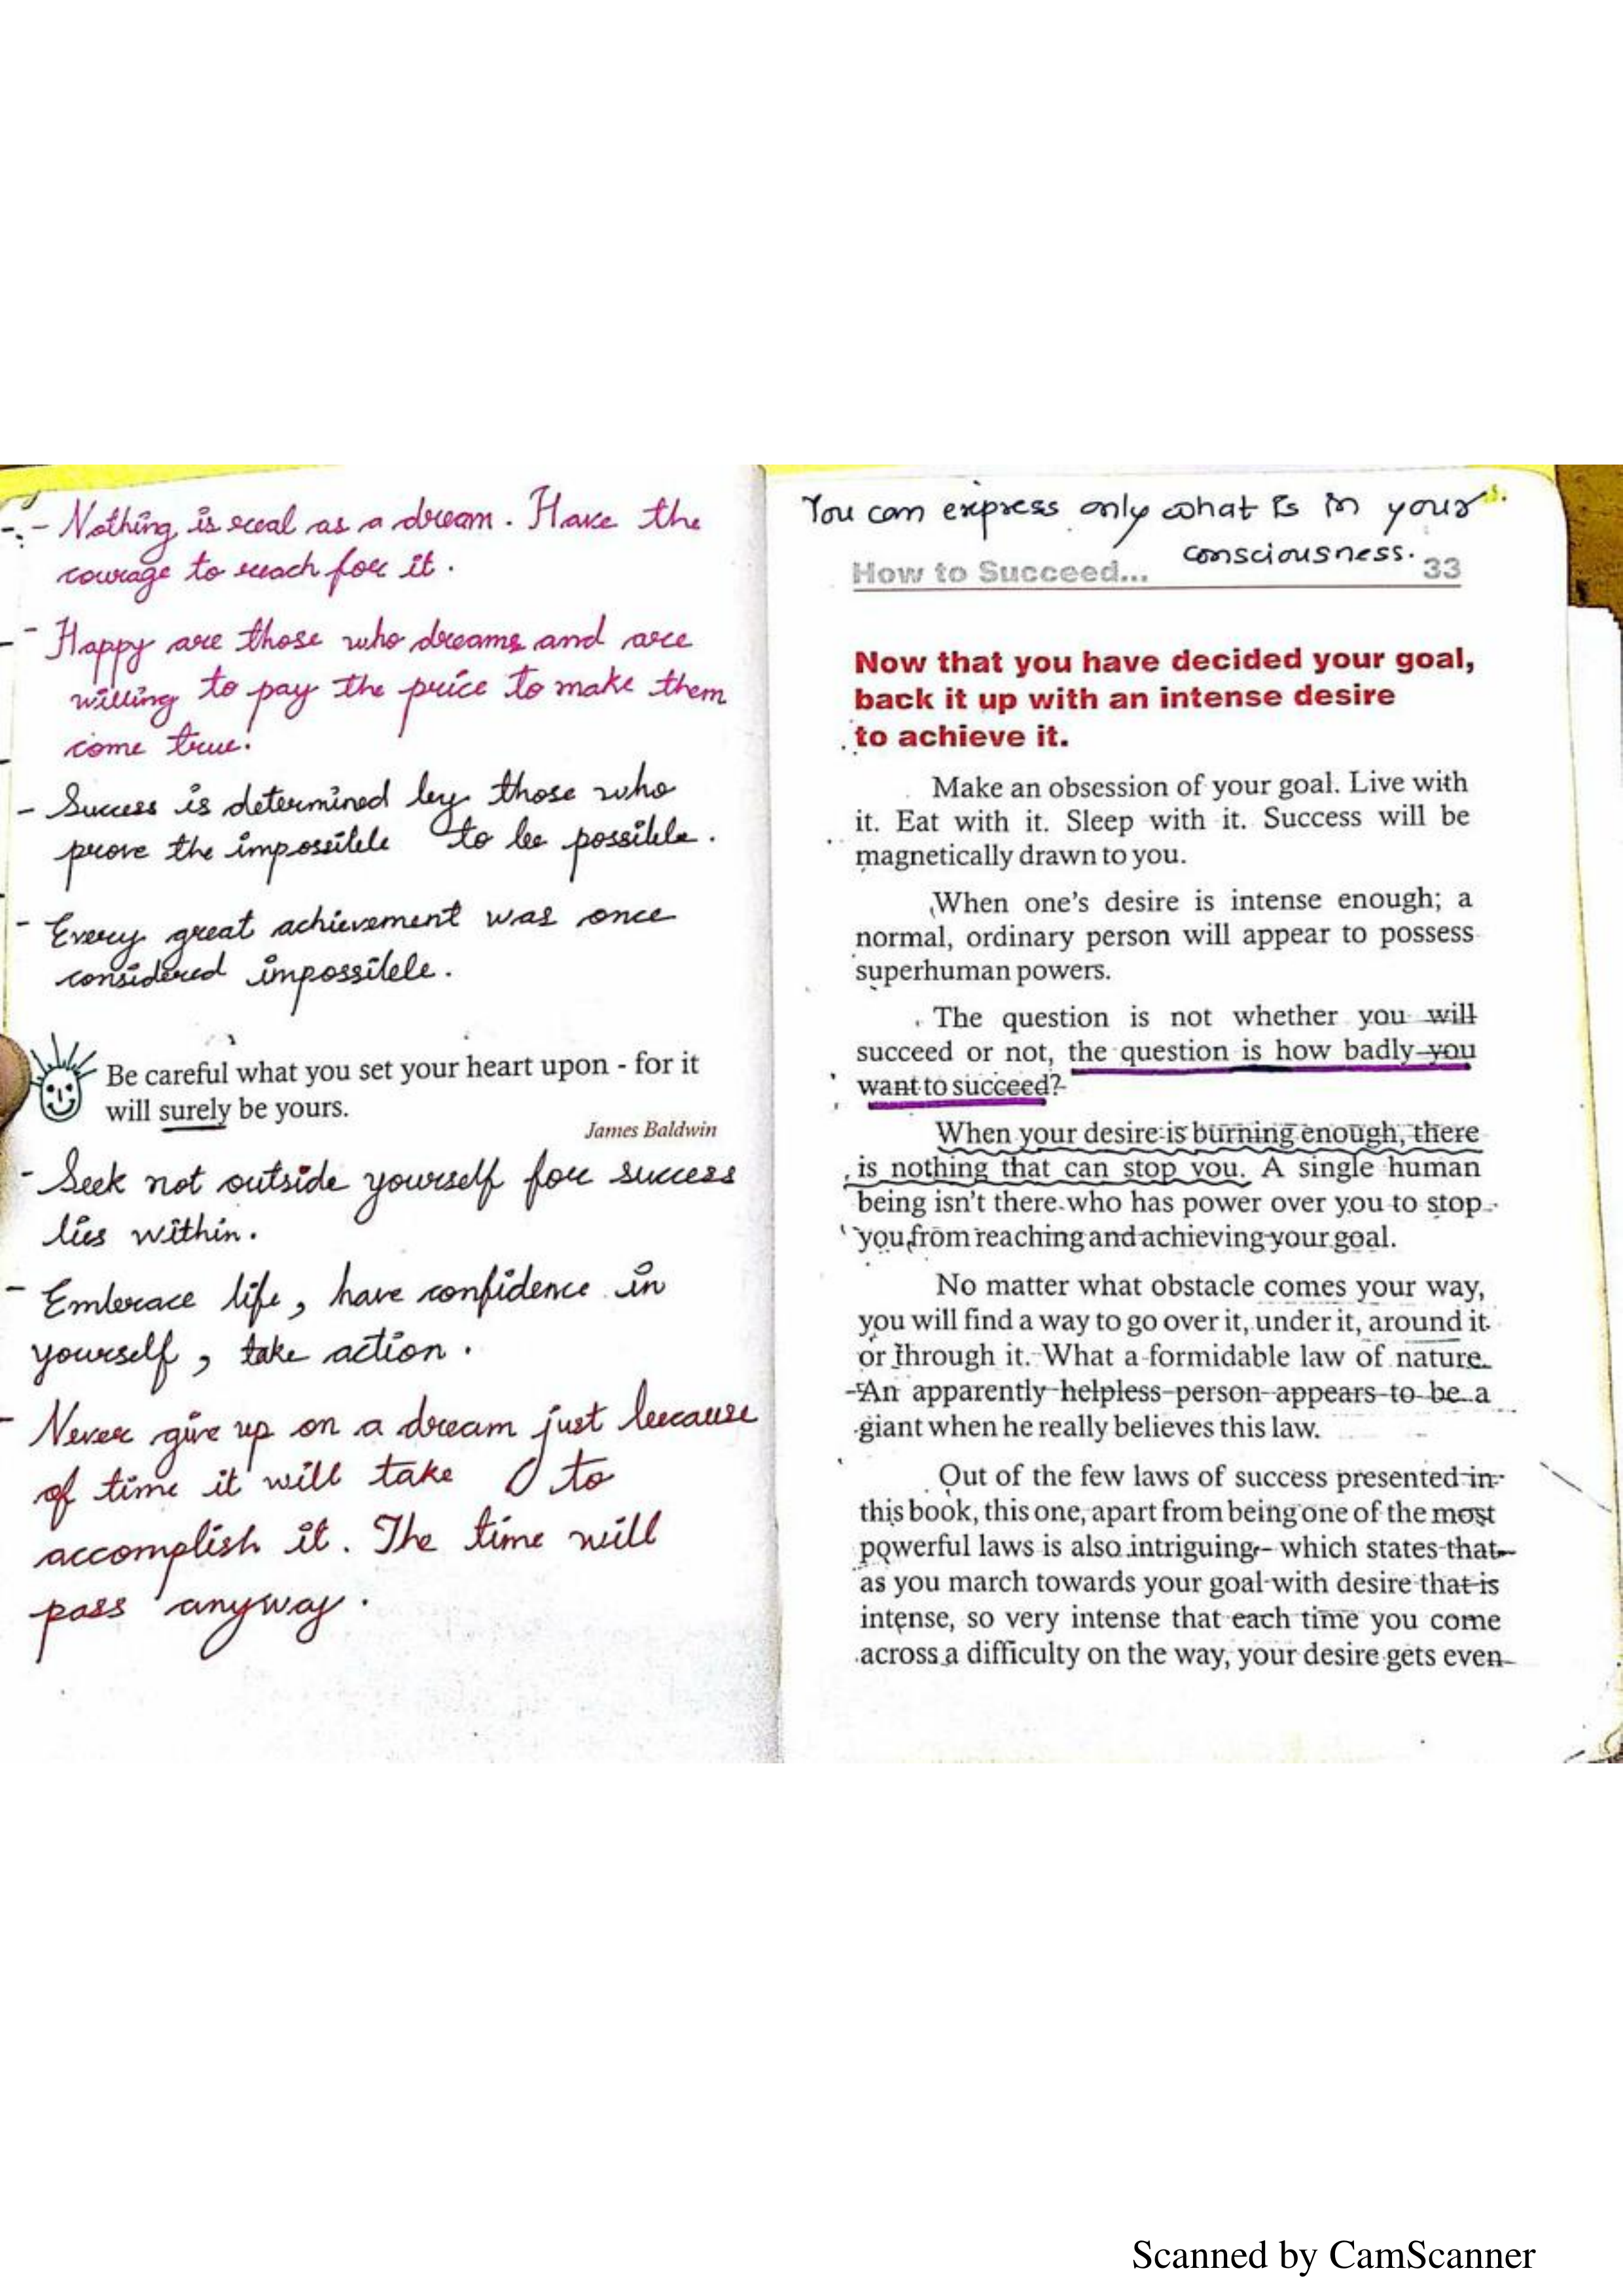 - Nothing is real as a dream. Have the
courage to reach for it.
- Happy are those who dreams and are
willing to pay the price to make them
come true.
- Success is determined by those who
prove the impossible to be possible.
- Every great achievement was once
considered impossible.
Be careful what you set your heart upon - for it
will surely be yours.
James Baldwin
- Seek not outside yourself for success
lies within.
- Embrace life, have confidence in
yourself, take action.
- Never give up on a dream just because
of time it will take to
accomplish it. The time will
pass anyway.
You can express only what is in your
consciousness.
How to Succeed... 33
Now that you have decided your goal,
back it up with an intense desire
to achieve it.
Make an obsession of your goal. Live with
it. Eat with it. Sleep with it. Success will be
magnetically drawn to you.
When one's desire is intense enough; a
normal, ordinary person will appear to possess
superhuman powers.
The question is not whether you will
succeed or not, the question is how badly you
want to succeed?
When your desire is burning enough, there
is nothing that can stop you. A single human
being isn't there who has power over you to stop
you from reaching and achieving your goal.
No matter what obstacle comes your way,
you will find a way to go over it, under it, around it
or through it. What a formidable law of nature.
An apparently helpless person appears to be a
giant when he really believes this law.
Out of the few laws of success presented in
this book, this one, apart from being one of the most
powerful laws is also intriguing - which states that
as you march towards your goal with desire that is
intense, so very intense that each time you come
across a difficulty on the way, your desire gets even
Scanned by CamScanner